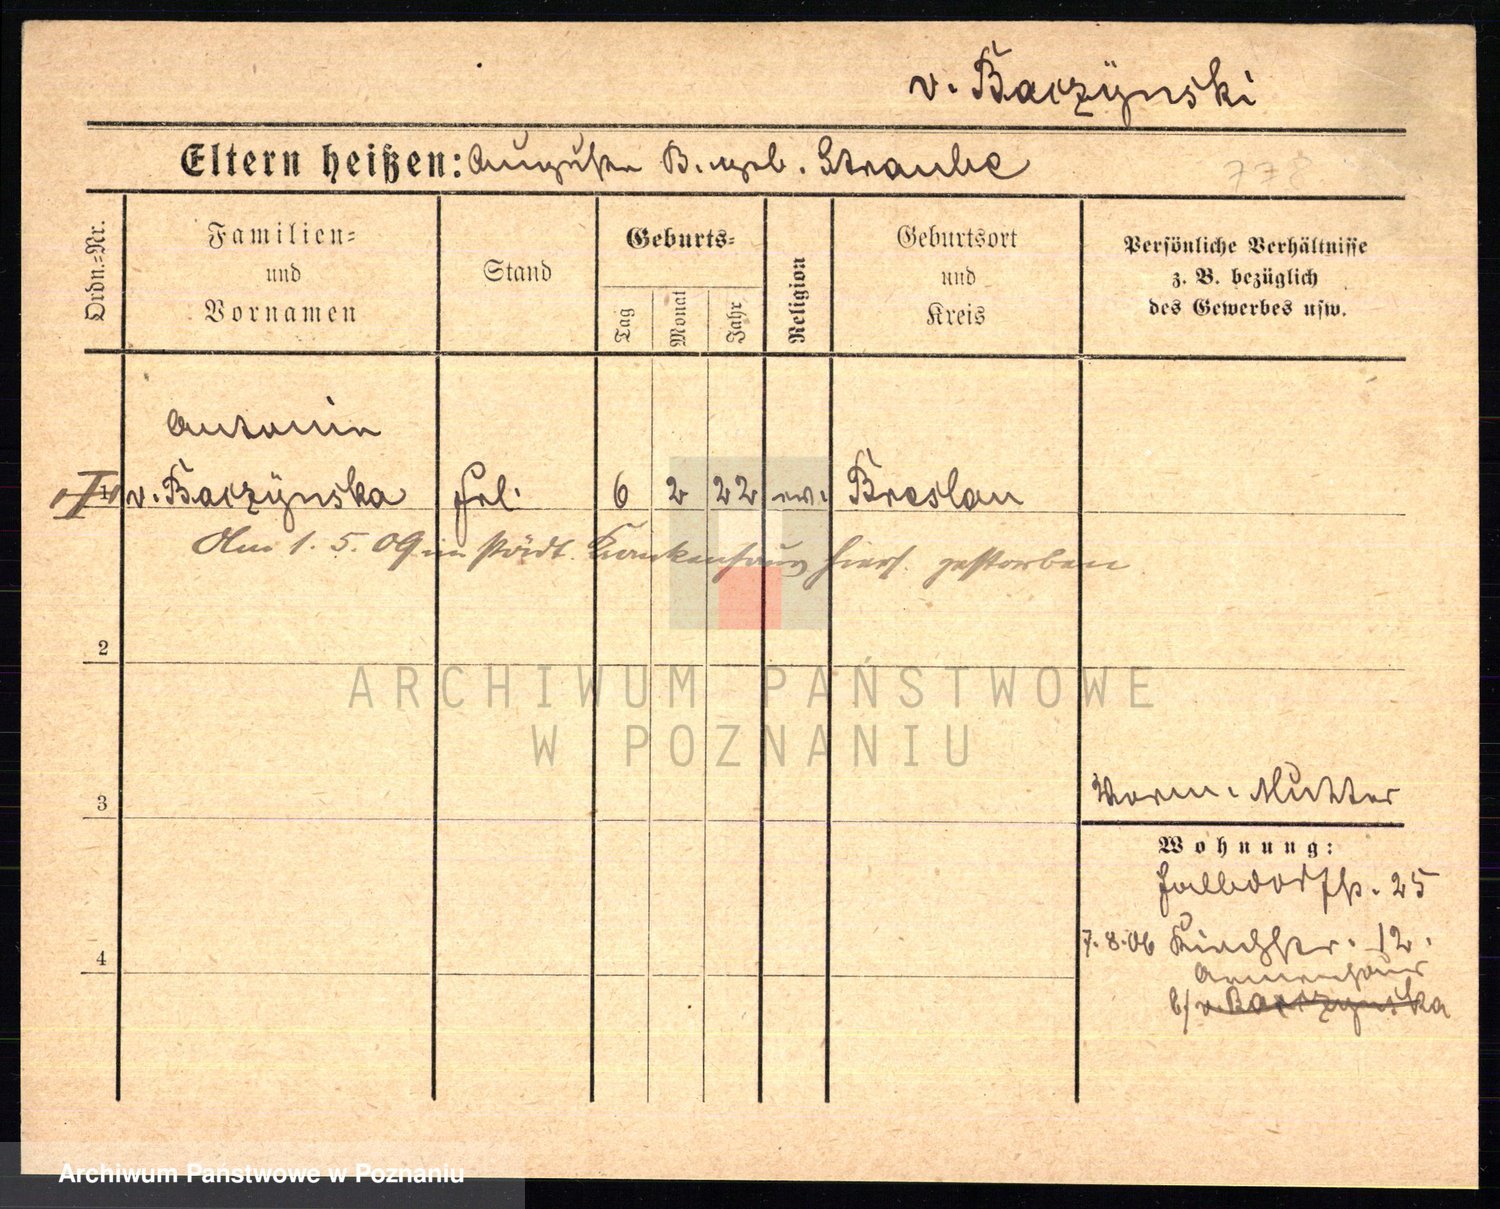 v. Baczÿnski
Eltern heißen: Auguste B. geb. Straube
778
Ordn.-Nr.
Familien-
und
Vornamen
Stand
Geburts-
Tag
Monat
Jahr
Religion
Geburtsort
und
Kreis
Persönliche Verhältnisse
z. B. bezüglich
des Gewerbes usw.
Antonie
1 v. Baczÿnska Frl. 6 2 22 ev. Breslau
Am 1. 5. 09 im städt. Krankenhaus hiers. gestorben
2
ARCHIWUM PAŃSTWOWE
W POZNANIU
3
Vorm. Mutter
Wohnung:
Halbdorfstr. 25
7.8.06 Kirchstr. 12.
Armenhaus
b/ v. Baczynska
4
Archiwum Państwowe w Poznaniu